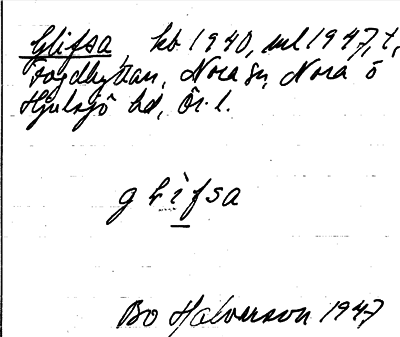 Glifsa, kb 1940, ml 1947, t,
Fogdhyttan, Nora sn, Nora o
Hjulsjö hd, Ör. l.
glifsa
Bo Halvarson 1947